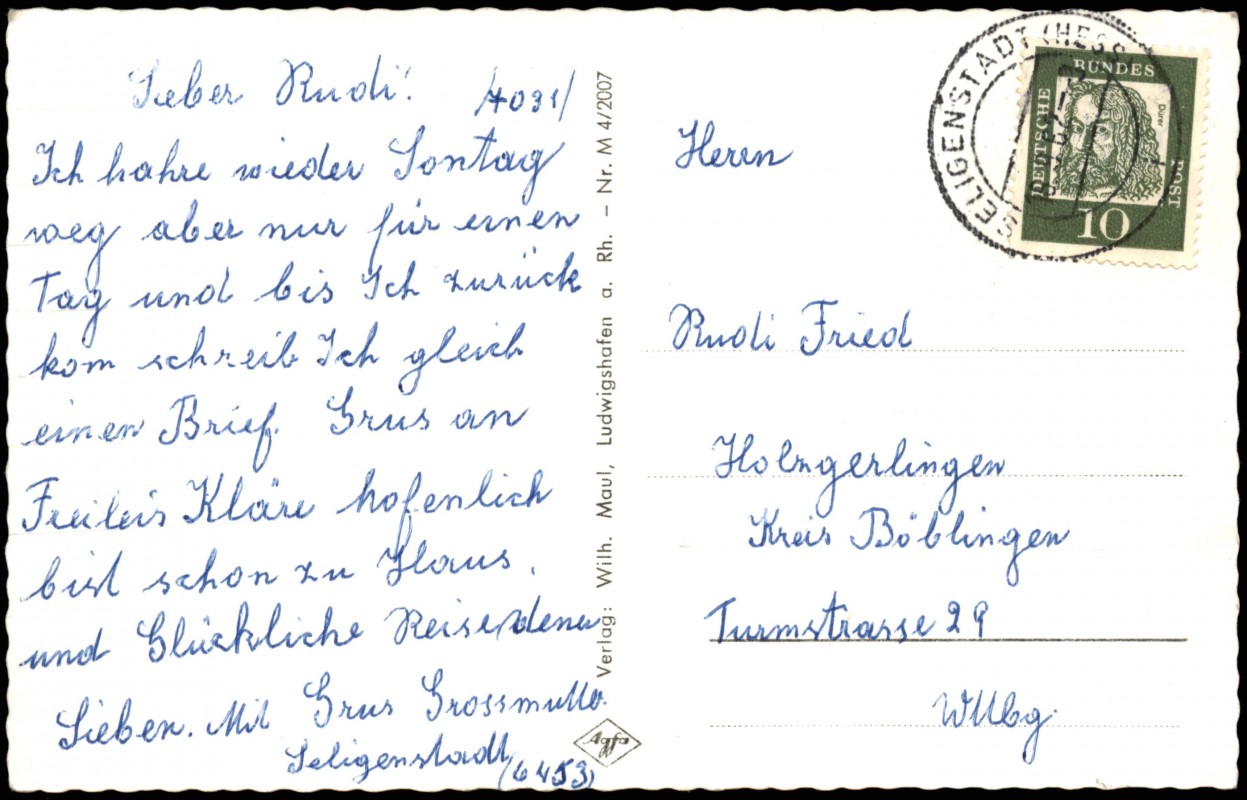 Lieber Rudi!
Ich hahre wieder Sontag
weg aber nur für einen
Tag und bis Ich zurück
kom schreib Ich gleich
einen Brief. Grus an
Freileis Kläre hofenlich
bist schon zu Haus,
und Glückliche Reise denen
Lieben. Mit Grus Grossmutter
Seligenstadt
(6453)
Verlag: Wilh. Maul, Ludwigshafen a. Rh. – Nr. M 4/2007
Agfa
SELIGENSTADT (HESS)
DEUTSCHE BUNDES POST
Dürer
10
Herrn
Rudi Fried
Holzgerlingen
Kreis Böblingen
Turmstrasse 29
Wttbg.